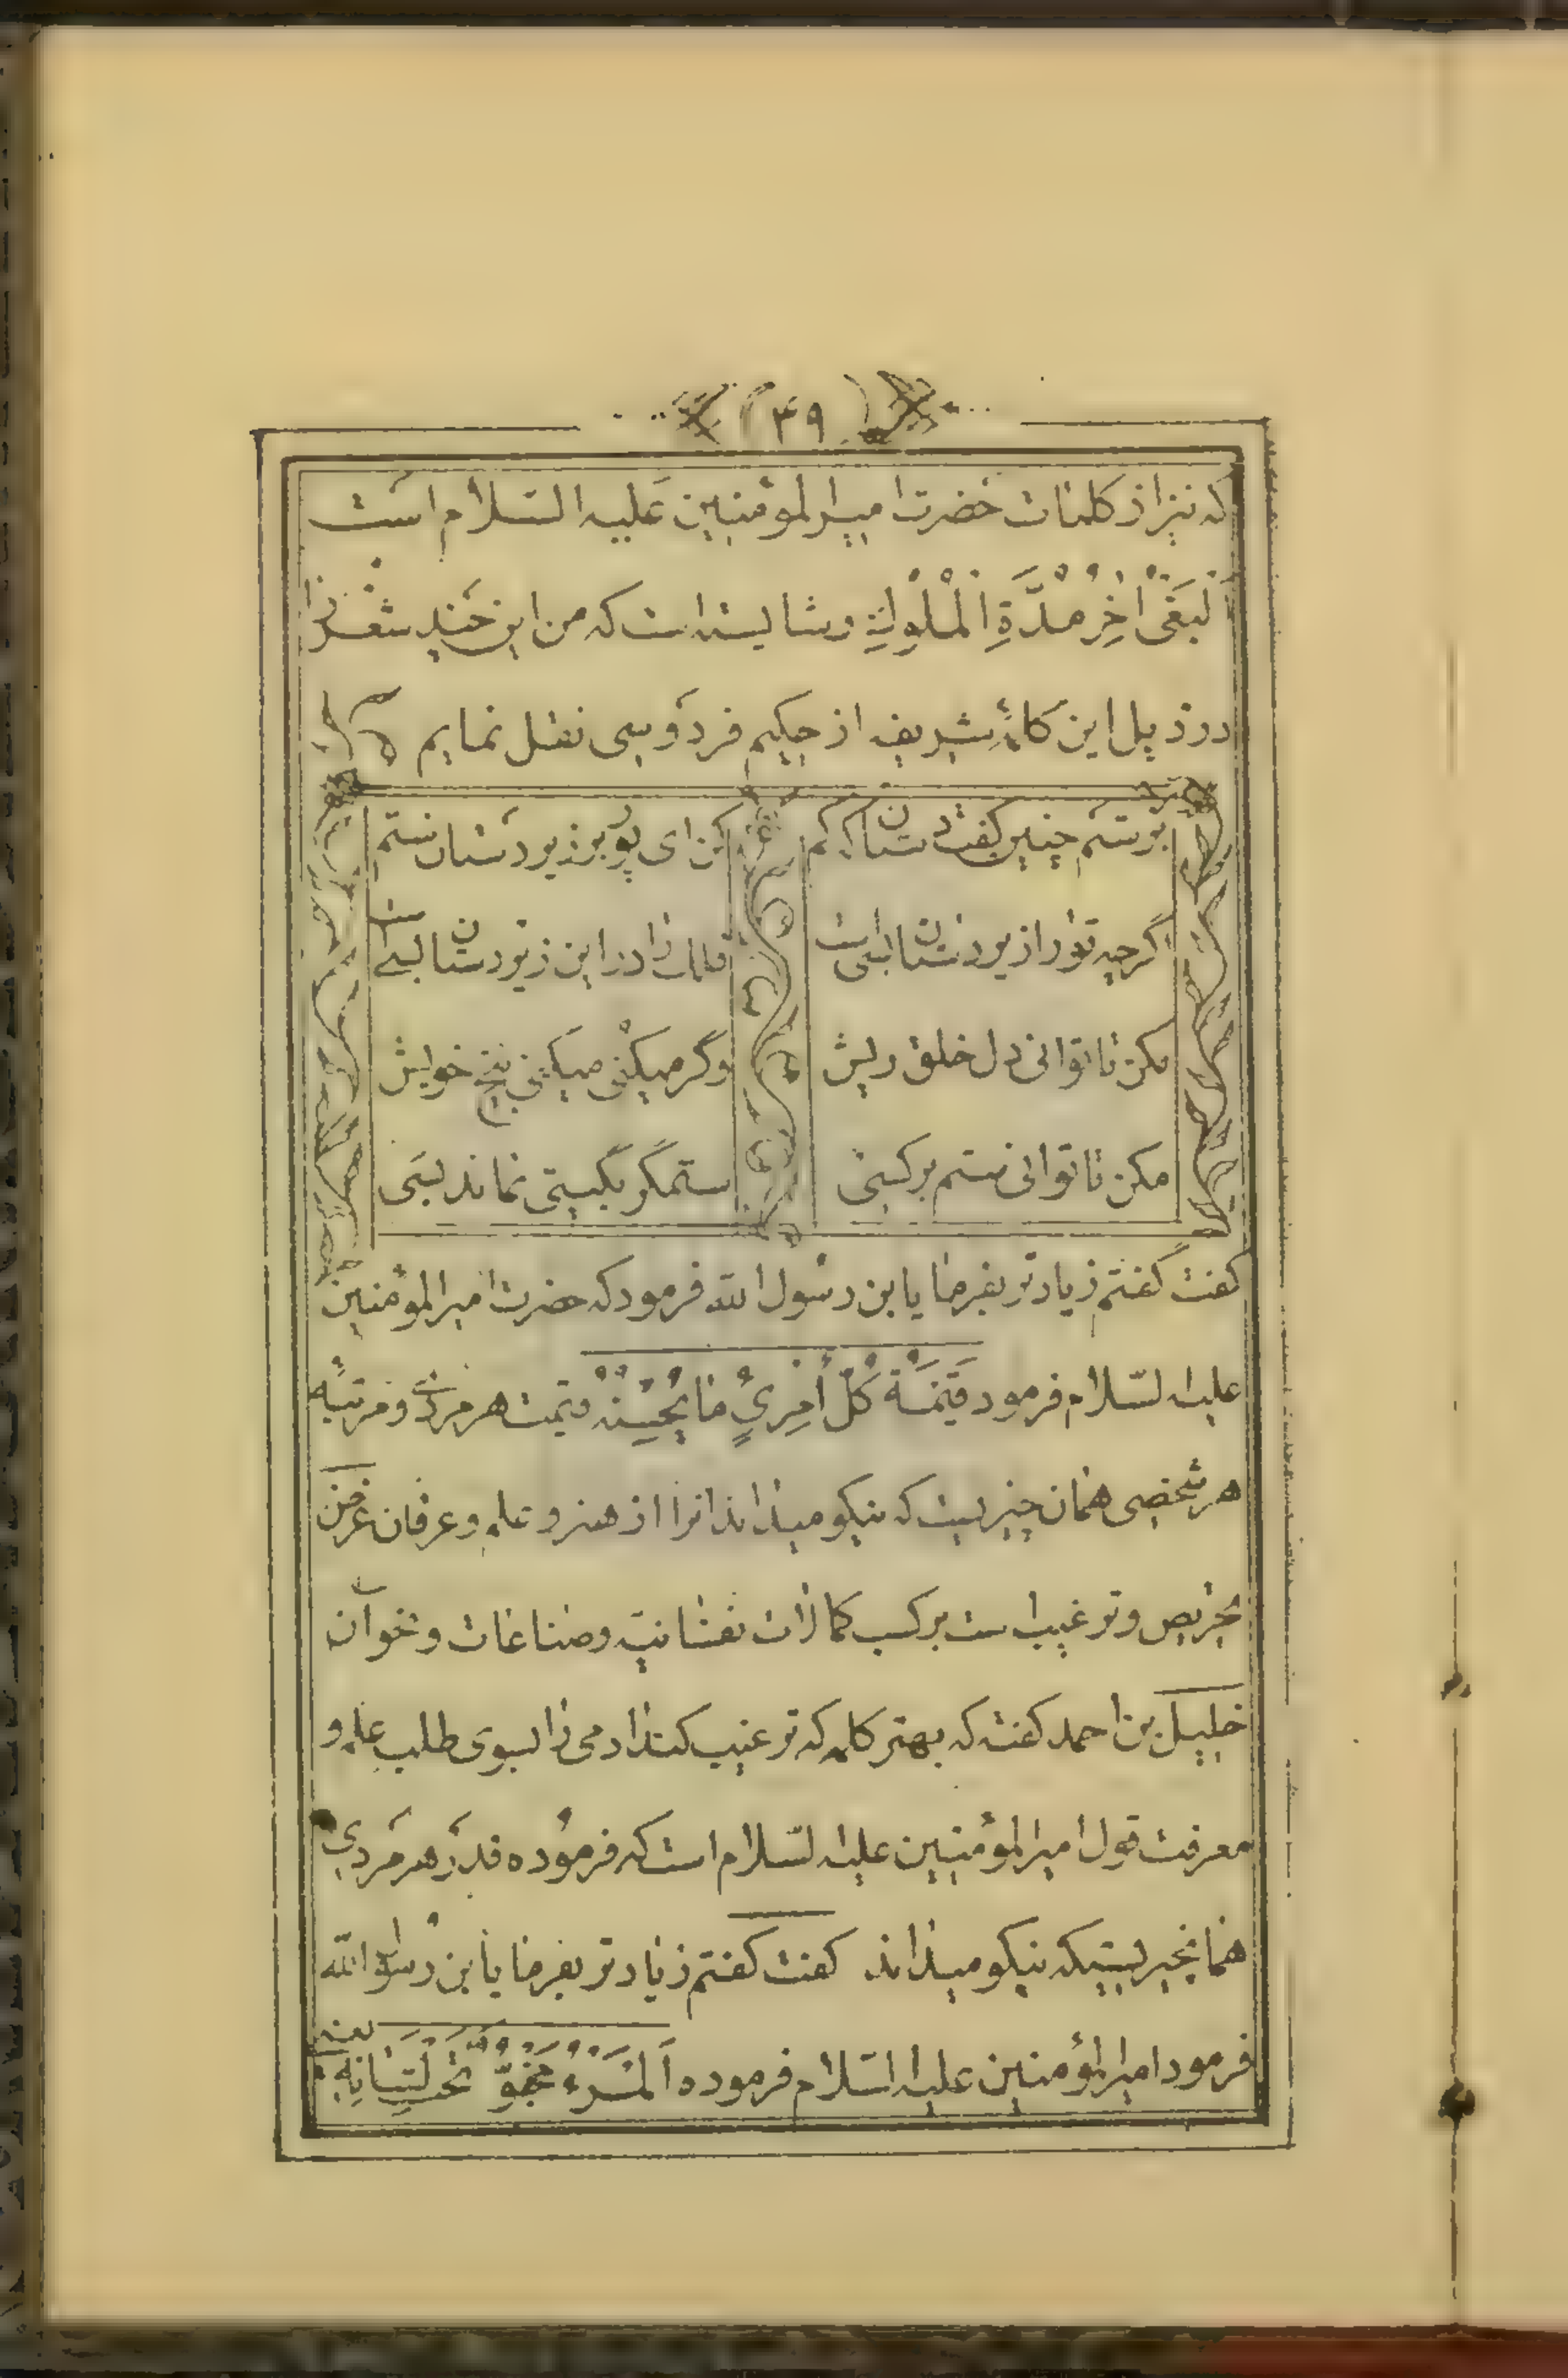 (۴۹)
که نیز از کلمات حضرت امیر المؤمنین علیه السلام است
اَلْبَغْیُ آخِرُ مُدَّةِ الْمُلُوكِ و شایسته است که من این چند شعر را
در ذیل این کلمهٔ شریفه از حکیم فردوسی نقل نمایم
برستم چنین گفت دستان که کم
کن ای پور بر زیر دستان ستم
گرچه تو را زیر دستان بسی است
فلک را در این زیر دستان بسی است
مکن تا توانی دل خلق ریش
وگر میکنی میکنی بیخ خویش
مکن تا توانی ستم بر کسی
ستمگر بگیتی نماند بسی
گفت گفتم زیادتر بفرما یابن رسول الله فرمود که حضرت امیر المؤمنین
علیه السّلام فرمود قیمَةُ كُلِّ امْرِئٍ مَا يُحْسِنُهُ قیمت هر مردی و مرتبهٔ
هر شخصی همان چیزیست که نیکو میداند آنرا از هنر و علم و عرفان غرض
تحریص و ترغیب است بر کسب کمالات نفسانیّه و صناعات و نحو آن
خلیل بن احمد گفت که بهتر کلمه که ترغیب کند آدمی را بسوی طلب علم و
معرفت قول امیر المؤمنین علیه السّلام است که فرموده قدر هر مردی
همانچیزیستیکه نیکو میداند گفت گفتم زیادتر بفرما یابن رسول الله
فرمود امیر المؤمنین علیه السّلام فرموده اَلْمَرْءُ مَخْبُوٌّ تَحْتَ لِسَانِهِ یعنی